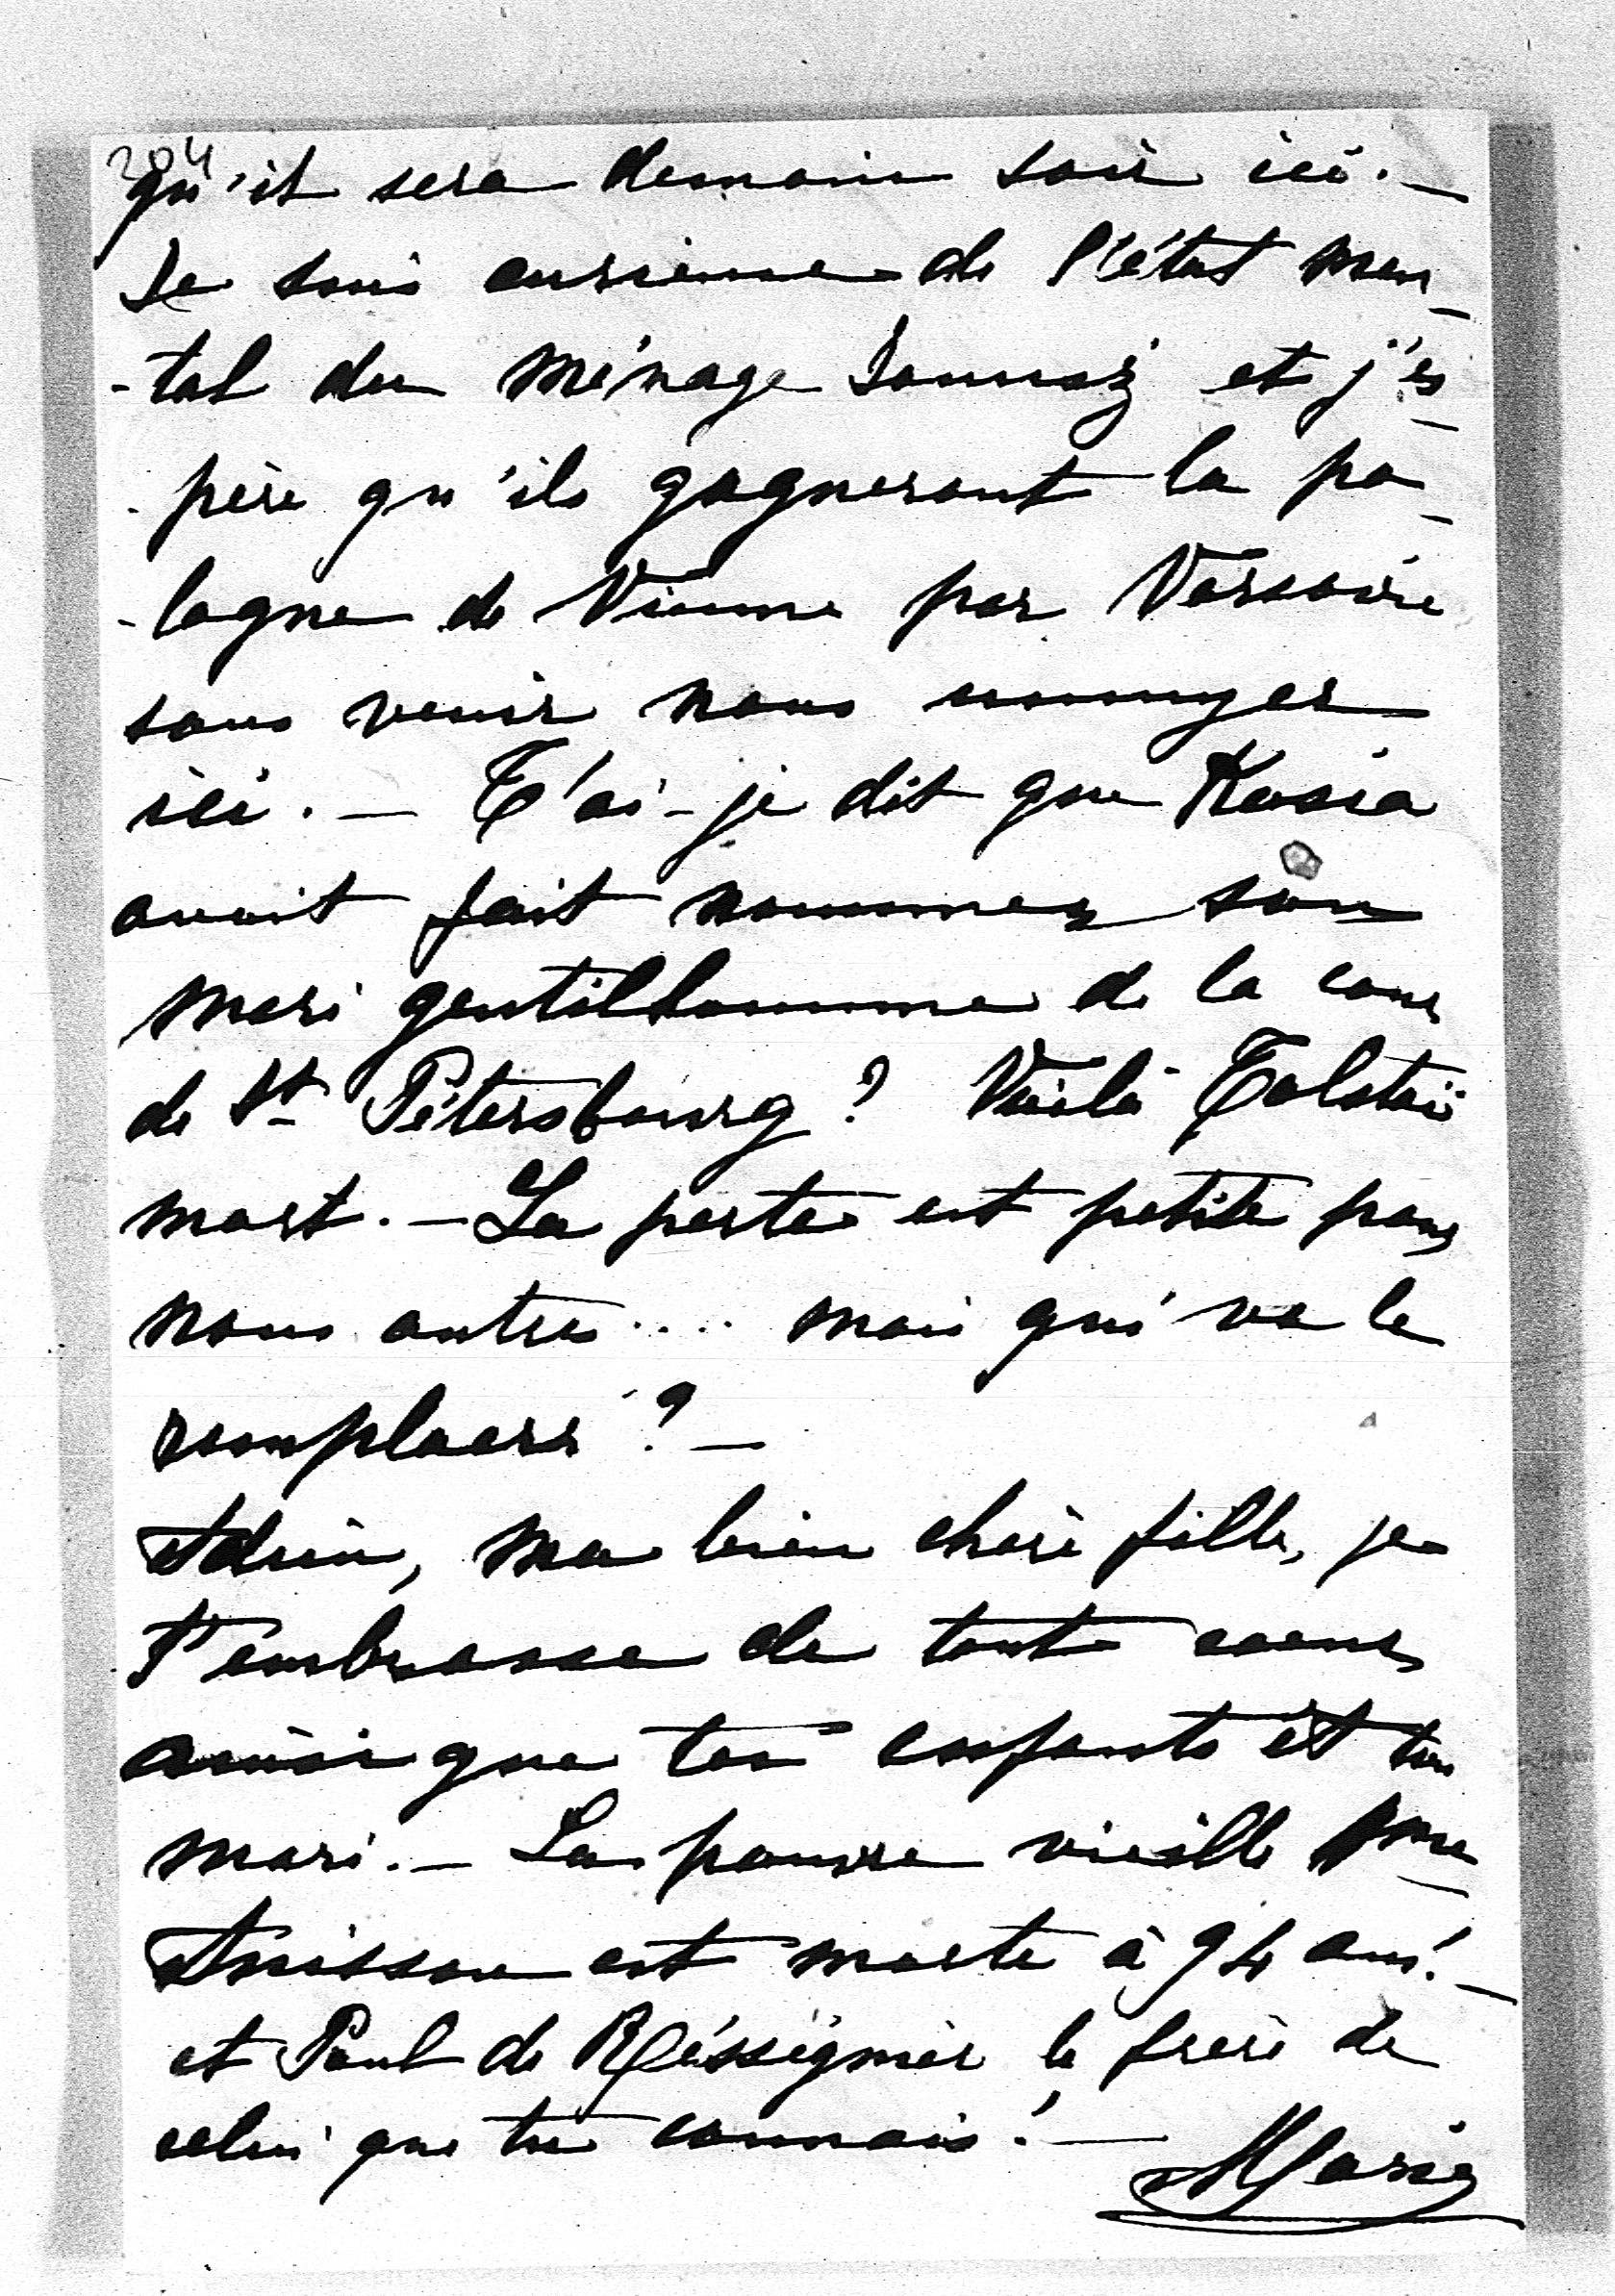 204
qu'il sera demain soir ici. —
Je suis curieuse de l'état men-
-tal du ménage Sonnaz et j'es-
-père qu'ils gagneront la po-
-logne de Vienne par Varsovie
sans venir nous ennuyer
ici. — T'ai-je dit que Kasia
avait fait nommer son
mari gentilhomme de la cour
de St Pétersbourg? Voilà Tolstoï
mort. — La perte est petite pour
nous autres .... mais qui va le
remplacer? —
Adieu, ma bien chère fille, je
t'embrasse de tout coeur
ainsi que tes enfants et ton
mari. — La pauvre vieille Mme
Anisson est morte à 94 ans! —
et Paul de Rességuier le frère de
celui que tu connais! —
Marie